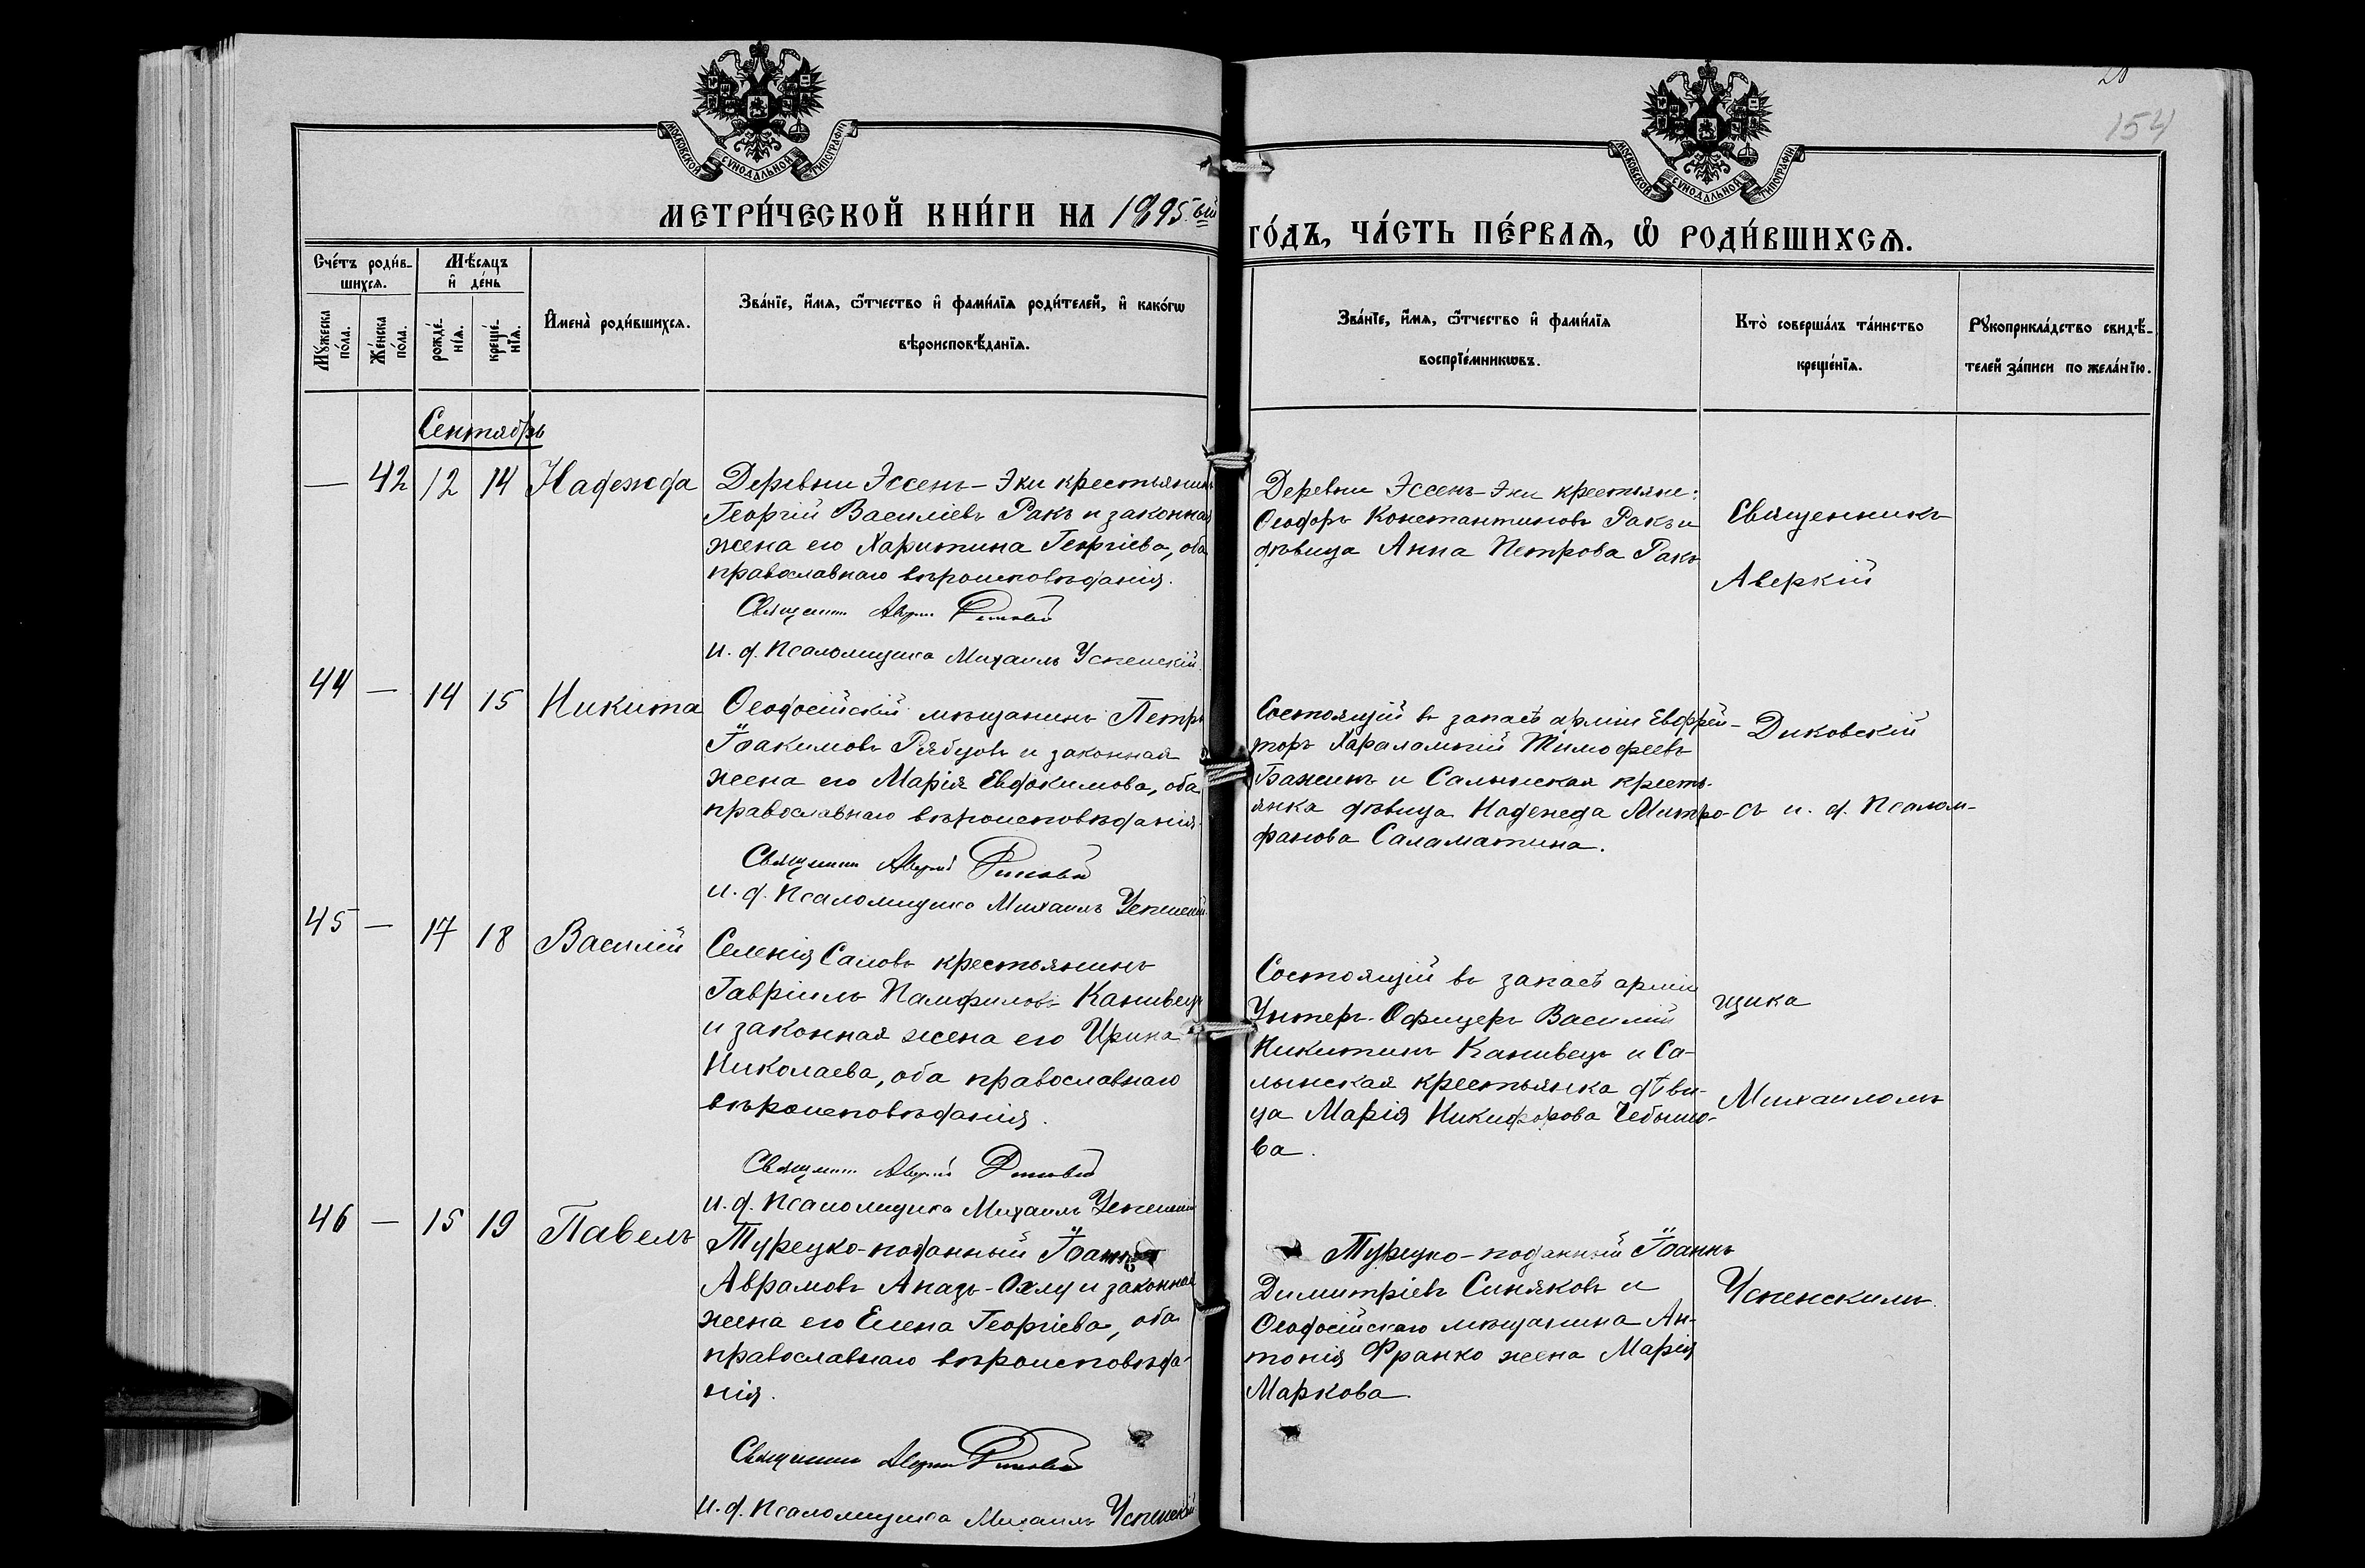 20
154
МОСКОВСКОЙ СѴНОДАЛЬНОЙ ТИПОГРАФІИ
МОСКОВСКОЙ СѴНОДАЛЬНОЙ ТИПОГРАФІИ
МЕТРИ́ЧЕСКОЙ КНИ́ГИ НА 1895.ый
ГО́ДЪ, ЧА́СТЬ ПЕ́РВАѦ, Ѡ҆ РОДИ́ВШИХСѦ.
Сче́тъ роди́в-
шихсѧ.
Мꙋ́жеска по́ла.
Же́нска по́ла.
Мѣ́сѧцъ
и҆ де́нь
рожде́-
нїѧ.
креще́-
нїѧ.
И҆мена̀ роди́вшихсѧ.
Зва́нїе, и҆́мѧ, ѻ҆́тчество и҆ фами́лїѧ роди́телей, и҆ како́гѡ
вѣроисповѣ́данїѧ.
Зва́нїе, и҆́мѧ, ѻ҆́тчество и҆ фами́лїѧ
воспрїе́мникѡвъ.
Кто̀ соверша́лъ та́инство
креще́нїѧ.
Рꙋкоприкла́дство свидѣ́-
телей за́писи по жела́нїю.
Сентябрь
— 42 12 14 Надежда
Деревни Эссенъ-Эки крестьянинъ
Георгій Василіевъ Ракъ и законная
жена его Харитина Георгіева, оба
православнаго вѣроисповѣданія.
Священникъ Аверкій Диковскій
и. д. Псаломщика Михаилъ Успенскій.
Деревни Эссенъ-Эки крестьяне:
Ѳеодоръ Константиновъ Ракъ и
дѣвица Анна Петрова Ракъ
44 — 14 15 Никита
Ѳеодосійскій мѣщанинъ Петръ
Іоакимовъ Рябцовъ и законная
жена его Марія Евдокимова, оба
православнаго вѣроисповѣданія.
Священникъ Аверкій Диковскій
и. д. Псаломщика Михаилъ Успенскій
Состоящій въ запасѣ арміи Ефрей-
торъ Харалампій Тимофеевъ
Бажинъ и Салынская кресть-
янка дѣвица Надежда Митро-
фанова Саламатина.
45 — 17 18 Василій
Селенія Салова крестьянинъ
Гавріилъ Памфиловъ Канивецъ
и законная жена его Ирина
Николаева, оба православнаго
вѣроисповѣданія.
Священникъ Аверкій Диковскій
и. д. Псаломщика Михаилъ Успенскій
Состоящій въ запасѣ арміи
Унтеръ-Офицеръ Василій
Никитинъ Канивецъ и Са-
лынская крестьянка дѣви-
ца Марія Никифорова Чебышо-
ва.
46 — 15 19 Павелъ
Турецко-подданный Іоаннъ
Аврамовъ Апазъ-Охлу и законная
жена его Елена Георгіева, оба
православнаго вѣроисповѣда-
нія.
Священникъ Аверкій Диковскій
и. д. Псаломщика Михаилъ Успенскій
Турецко-поданный Іоаннъ
Димитріевъ Синяковъ и
Ѳеодосійскаго мѣщанина Ан-
тонія Франко жена Марія
Маркова.
Священникъ
Аверкій
Диковскій
съ и. д. Псалом-
щика
Михаиломъ
Успенскимъ.